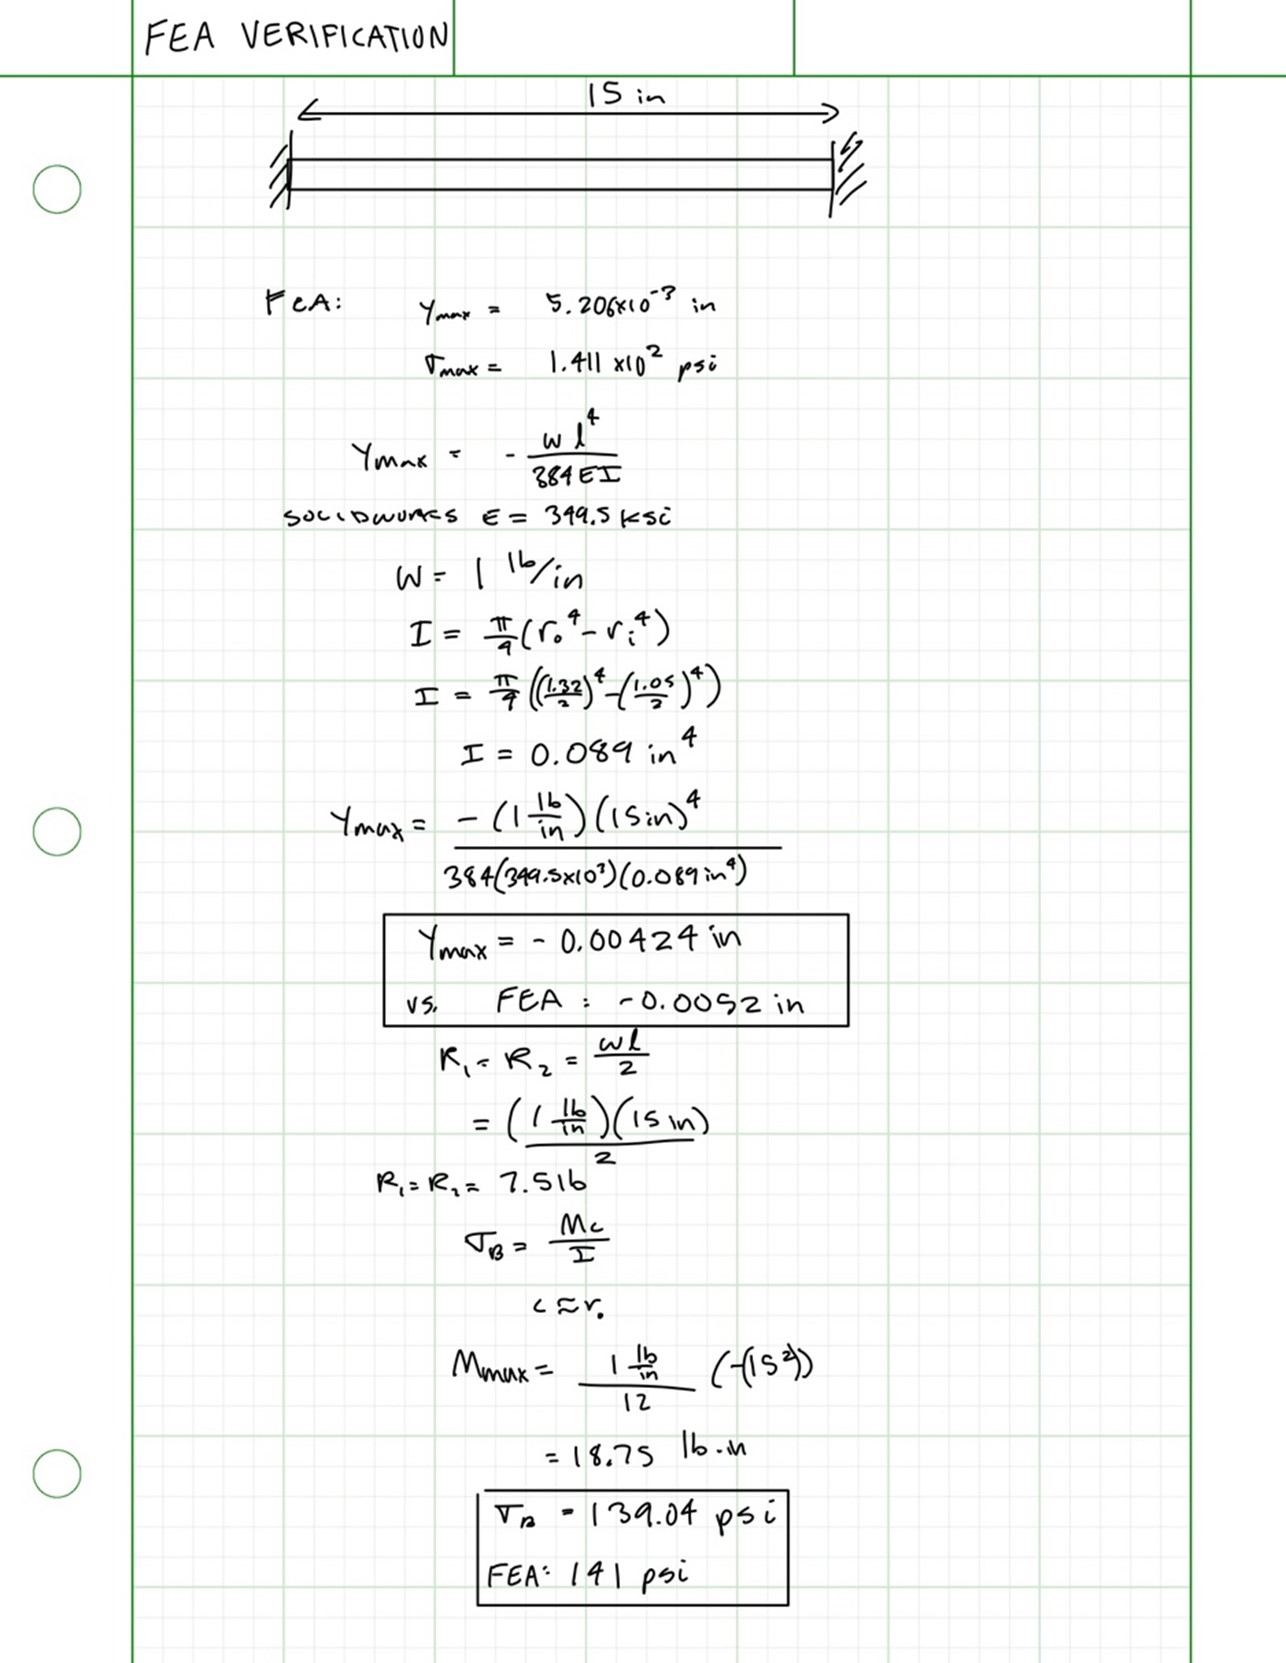 FEA VERIFICATION
15 in
FEA: Ymax = 5.206x10^-3 in
σmax = 1.411 x10^2 psi
Ymax = - wl^4 / 384EI
SOLIDWORKS E = 349.5 ksi
W = 1 lb/in
I = π/4 (ro^4 - ri^4)
I = π/4 ((1.32/2)^4 - (1.05/2)^4)
I = 0.089 in^4
Ymax = -(1 lb/in)(15in)^4 / 384(349.5x10^3)(0.089in^4)
Ymax = - 0.00424 in
vs. FEA : -0.0052 in
R1 = R2 = wl/2
= (1 lb/in)(15 in) / 2
R1 = R2 = 7.5lb
σB = Mc/I
c ≈ ro
Mmax = 1 lb/in / 12 (-(15^2))
= 18.75 lb·in
σB = 139.04 psi
FEA: 141 psi